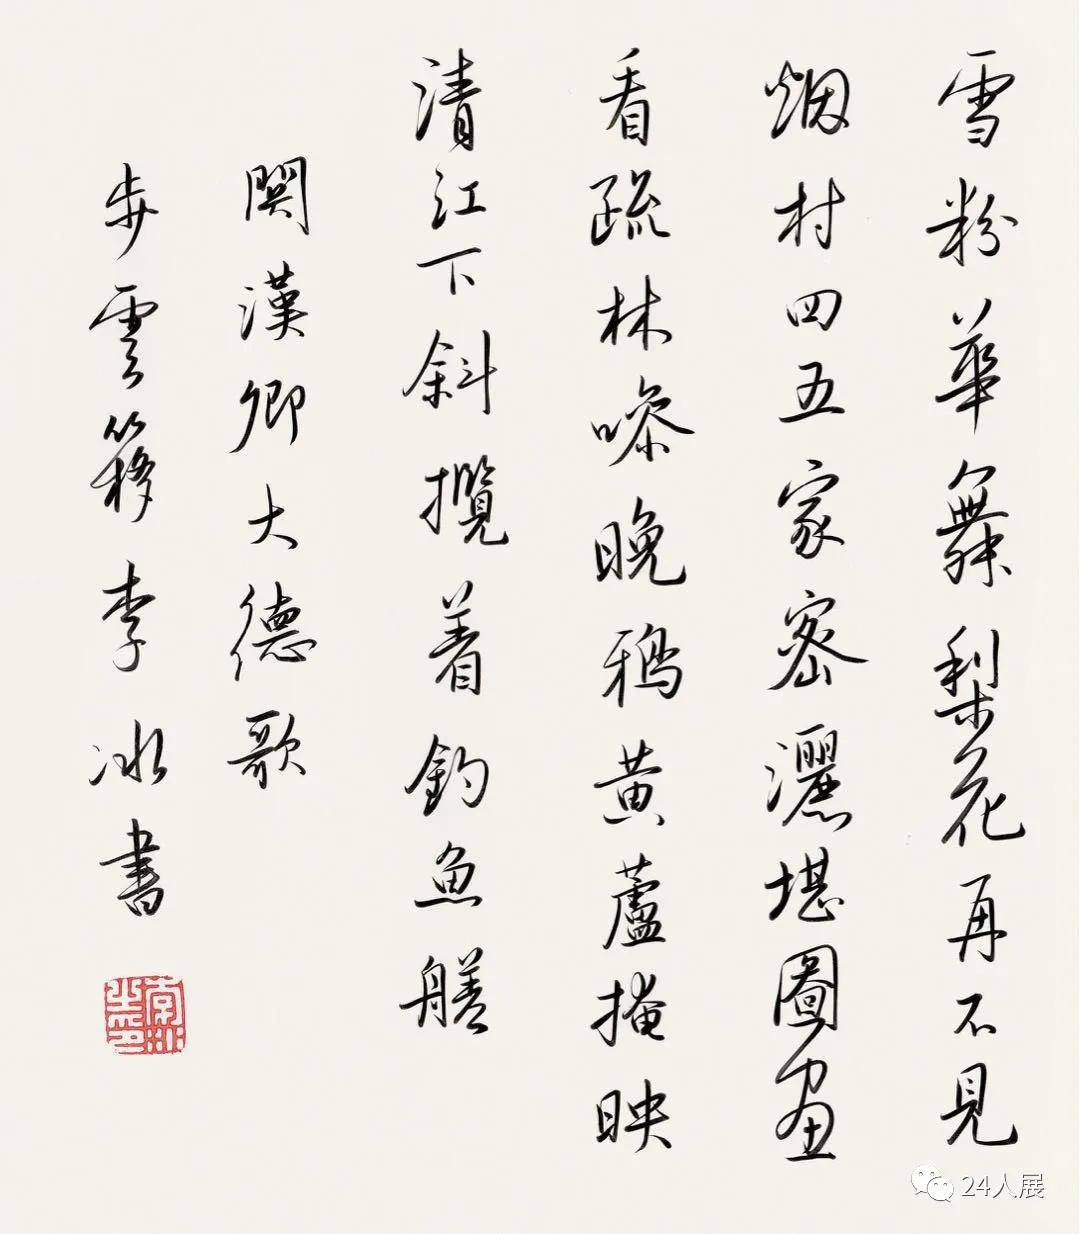 雪粉華舞梨花再不見
烟村四五家密灑堪圖畫
看疏林噪晚鴉黄蘆掩映
清江下斜攬着釣魚艖
關漢卿大德歌
步雲簃李冰書
李冰之印
24人展